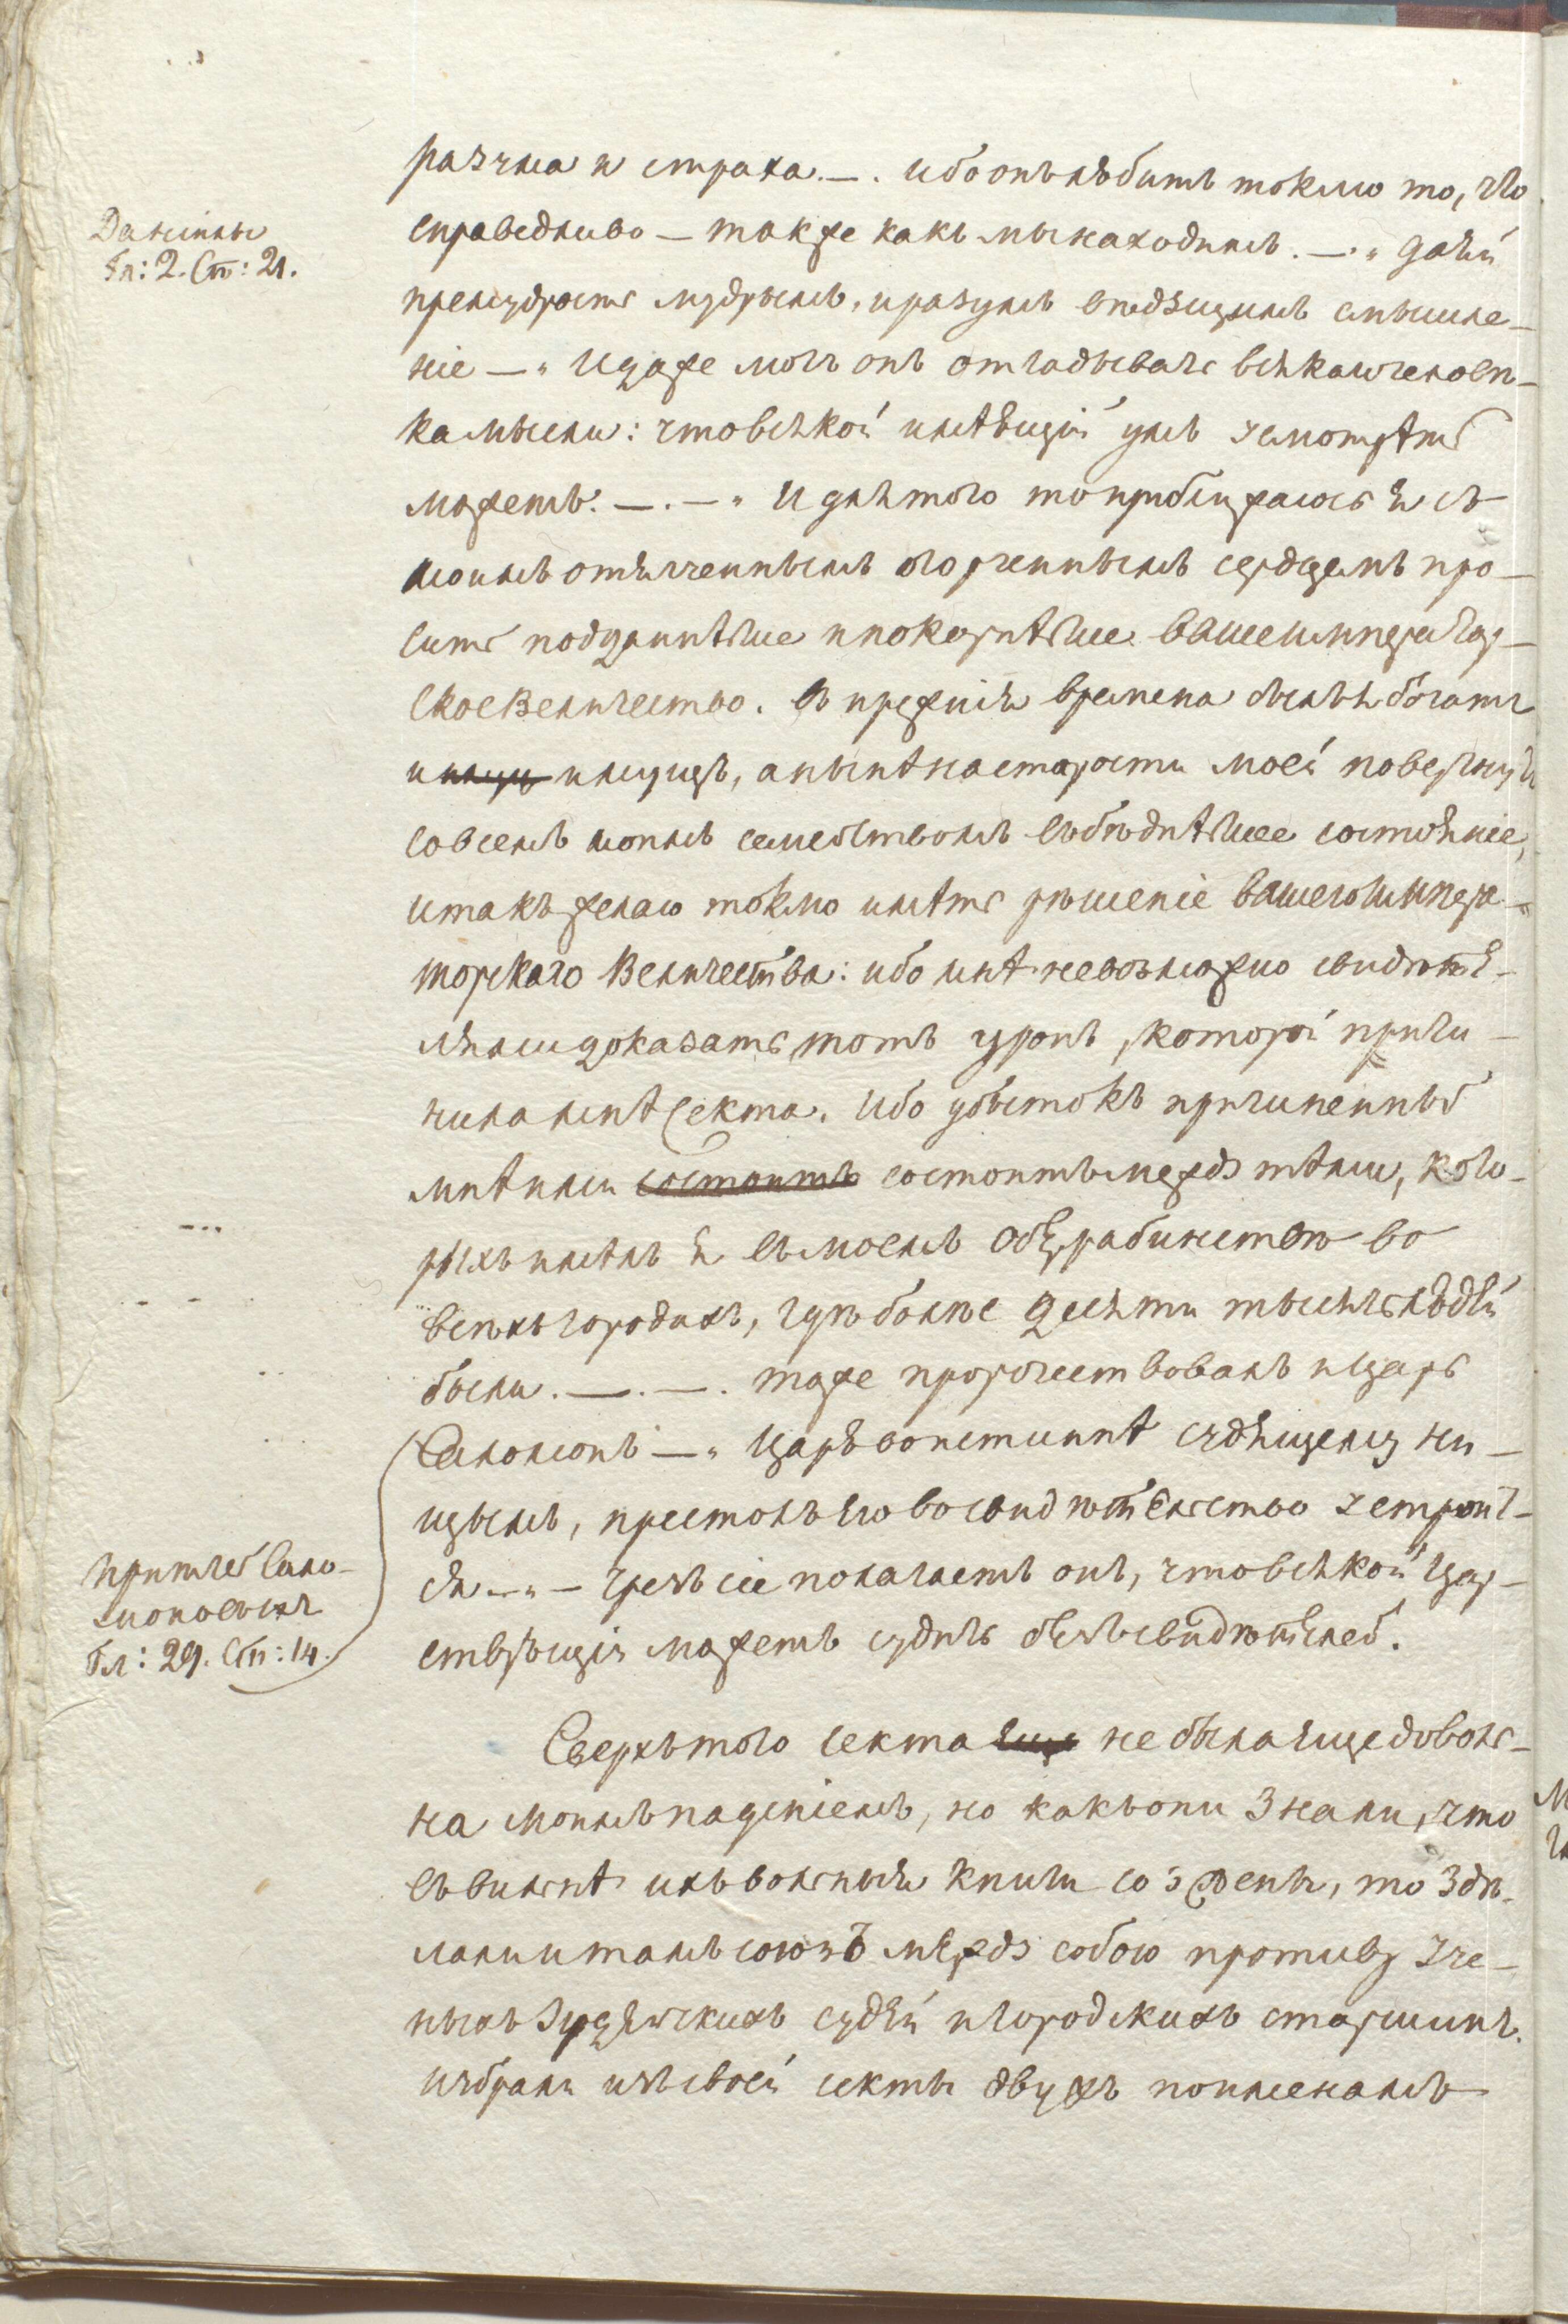 разума и страха. —. Ибо онъ любитъ токмо то, что
Даніилъ
Гл: 2. Ст: 21.
справедливо — также какъ мы находимъ. —„ даяй
премудрость мудрымъ, и разумъ вѣдущимъ смышле-
ніе —„ И даже могъ онъ отгадывать всякаго человѣ-
ка мысли: что всякой имѣющій умъ усмотрѣть
можетъ. —. —„ И для того то приближаюсь я съ
моимъ отягченнымъ огорченнымъ сердцемъ про-
сить подданнѣйше и покорнѣйше Ваше Император-
ское Величество. Въ прежнія времена былъ я богатъ
и имущь имущъ, а нынѣ на старости моей повергнутъ
со всемъ моимъ семействомъ въ бѣднѣйшее состояніе,
и такъ желаю токмо имѣть рѣшеніе Вашего Импера-
торскаго Величества: ибо мнѣ невозможно свидѣте-
лями доказать тотъ уронъ, которой причи-
нила мнѣ секта. Ибо убытокъ причиненный
мнѣ ими состоитъ состоитъ между тѣми, кото-
рыхъ имѣлъ я въ моемъ Оберрабинствѣ во
всѣхъ городахъ, гдѣ болѣе десяти тысячь людей
были. —. —. тоже пророчествовалъ и Царь
Саломонъ —„ Царю воистиннѣ судящему ни-
щымъ, престолъ его во свидѣтельство устроит-
ся —„ — Чрезъ сіе полагаетъ онъ, что всякой Цар-
ствующій можетъ судить безъ свидѣтелей.
Притчей Сало-
моновыхъ
Гл: 29. Ст: 14.
Сверхъ того секта еще не была еще доволь-
на моимъ паденіемъ, но какъ они знали, что
въ Вильнѣ ихъ вольныя книги созжены, то здѣ-
лали и тамъ союзъ между собою противу уче-
ныхъ Іудейскихъ судей и городскихъ старшинъ.
Избрали изъ своей секты двухъ поименамъ